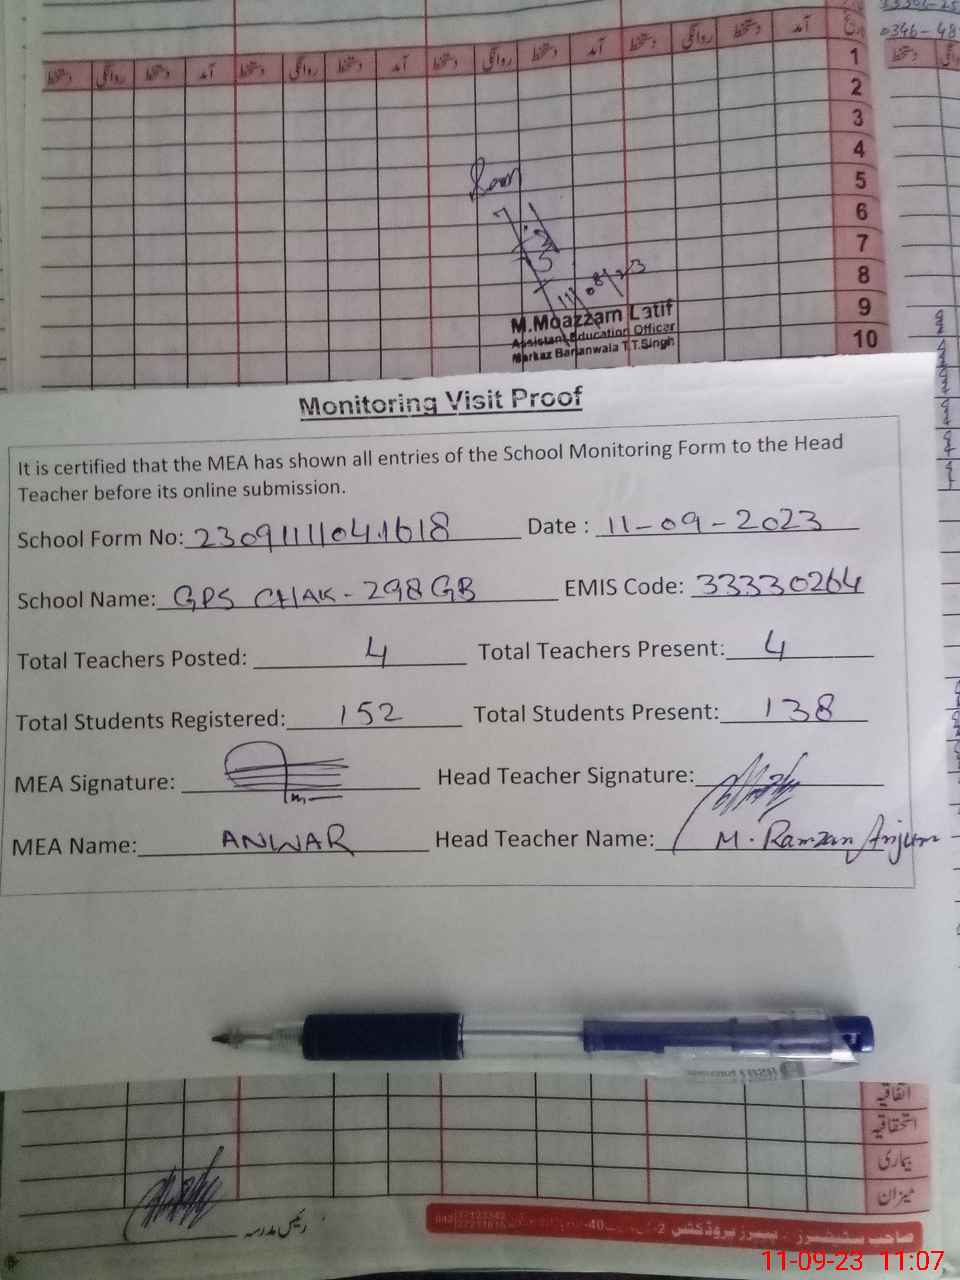 دستخط روانگی دستخط آمد دستخط روانگی دستخط آمد دستخط روانگی دستخط آمد دستخط روانگی دستخط آمد
1
2
3
4
5
6
7
8
9
10
0346-48
11/08/23
M.Moazzam Latif
Assistant Education Officer
Markaz Barianwala T.T.Singh
Monitoring Visit Proof
It is certified that the MEA has shown all entries of the School Monitoring Form to the Head
Teacher before its online submission.
School Form No: 23091111041618 Date : 11-09-2023
School Name: GPS CHAK-298GB EMIS Code: 33330264
Total Teachers Posted: 4 Total Teachers Present: 4
Total Students Registered: 152 Total Students Present: 138
MEA Signature: Head Teacher Signature:
MEA Name: ANWAR Head Teacher Name: M. Ramzan Anjum
اتفاقیہ
استحقاقیہ
بیماری
میزان
رئیس مدرسہ
11-09-23 11:07